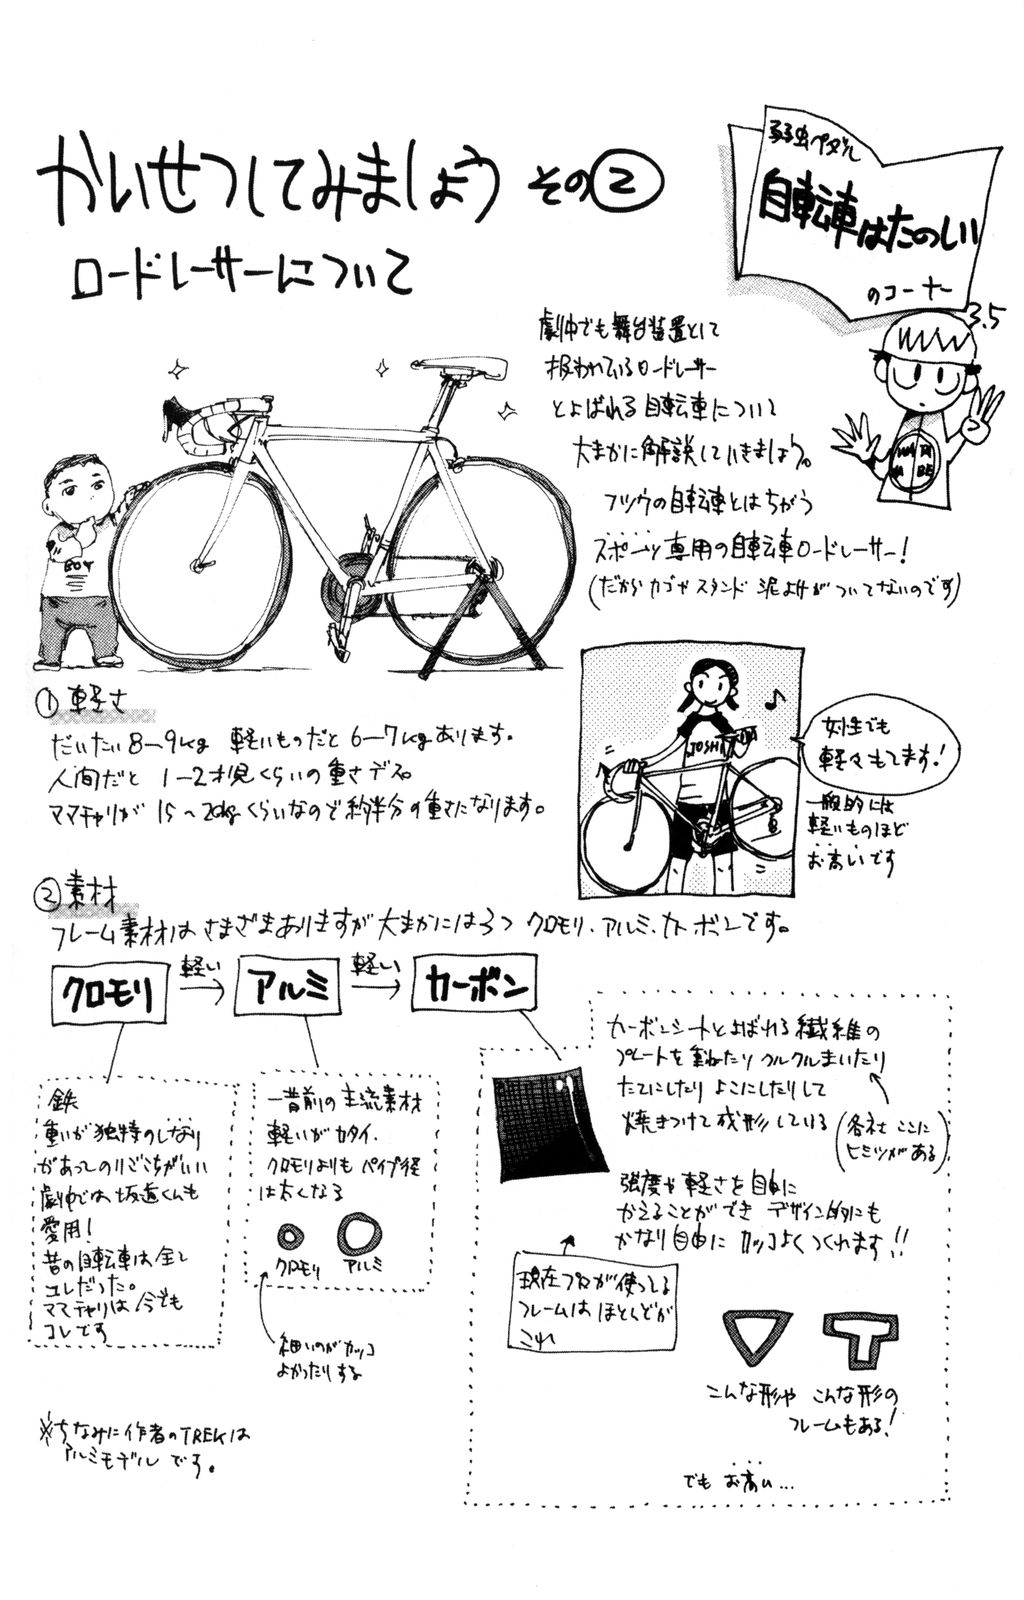 かいせつしてみましょう その②
ロードレーサーについて
弱虫ペダル
自転車はたのしい
のコーナー
3.5
劇中でも舞台装置として
扱われているロードレーサー
とよばれる自転車について
大まかに解説していきましょう。
フツウの自転車とはちがう
スポーツ専用の自転車ロードレーサー!
(だからカゴやスタンド 泥よけがついてないのです)
WA TA
NA BE
BOY
①軽さ
だいたい8〜9kg 軽いものだと6〜7kgあります。
人間だと 1〜2才児くらいの重さデス。
ママチャリが 15〜20kgくらいなので約半分の重さになります。
JOSHI
女性でも
軽々もてます!
一般的には
軽いものほど
お高いです
②素材
フレーム素材はさまざまありますが大まかには3つ クロモリ、アルミ、カーボンです。
クロモリ 軽い→ アルミ 軽い→ カーボン
鉄
重いが独特のしなり
があってのりごこちがいい
劇中では坂道くんも
愛用!
昔の自転車は全て
コレだった。
ママチャリは今でも
コレです
一昔前の主流素材
軽いがカタイ.
クロモリよりもパイプ径
は太くなる
クロモリ アルミ
細いのがカッコ
よかったりする
カーボンシートとよばれる繊維の
プレートを重ねたりクルクルまいたり
たてにしたりよこにしたりして
焼きつけて成形している
(各社ここに
ヒミツがある)
強度や軽さを自由に
かえることができ デザイン的にも
かなり自由に カッコよくつくれます!!
現在プロが使ってる
フレームはほとんどが
これ
こんな形や こんな形の
フレームもある!
でも お高い…
※ちなみに作者のTREKは
アルミモデルです。